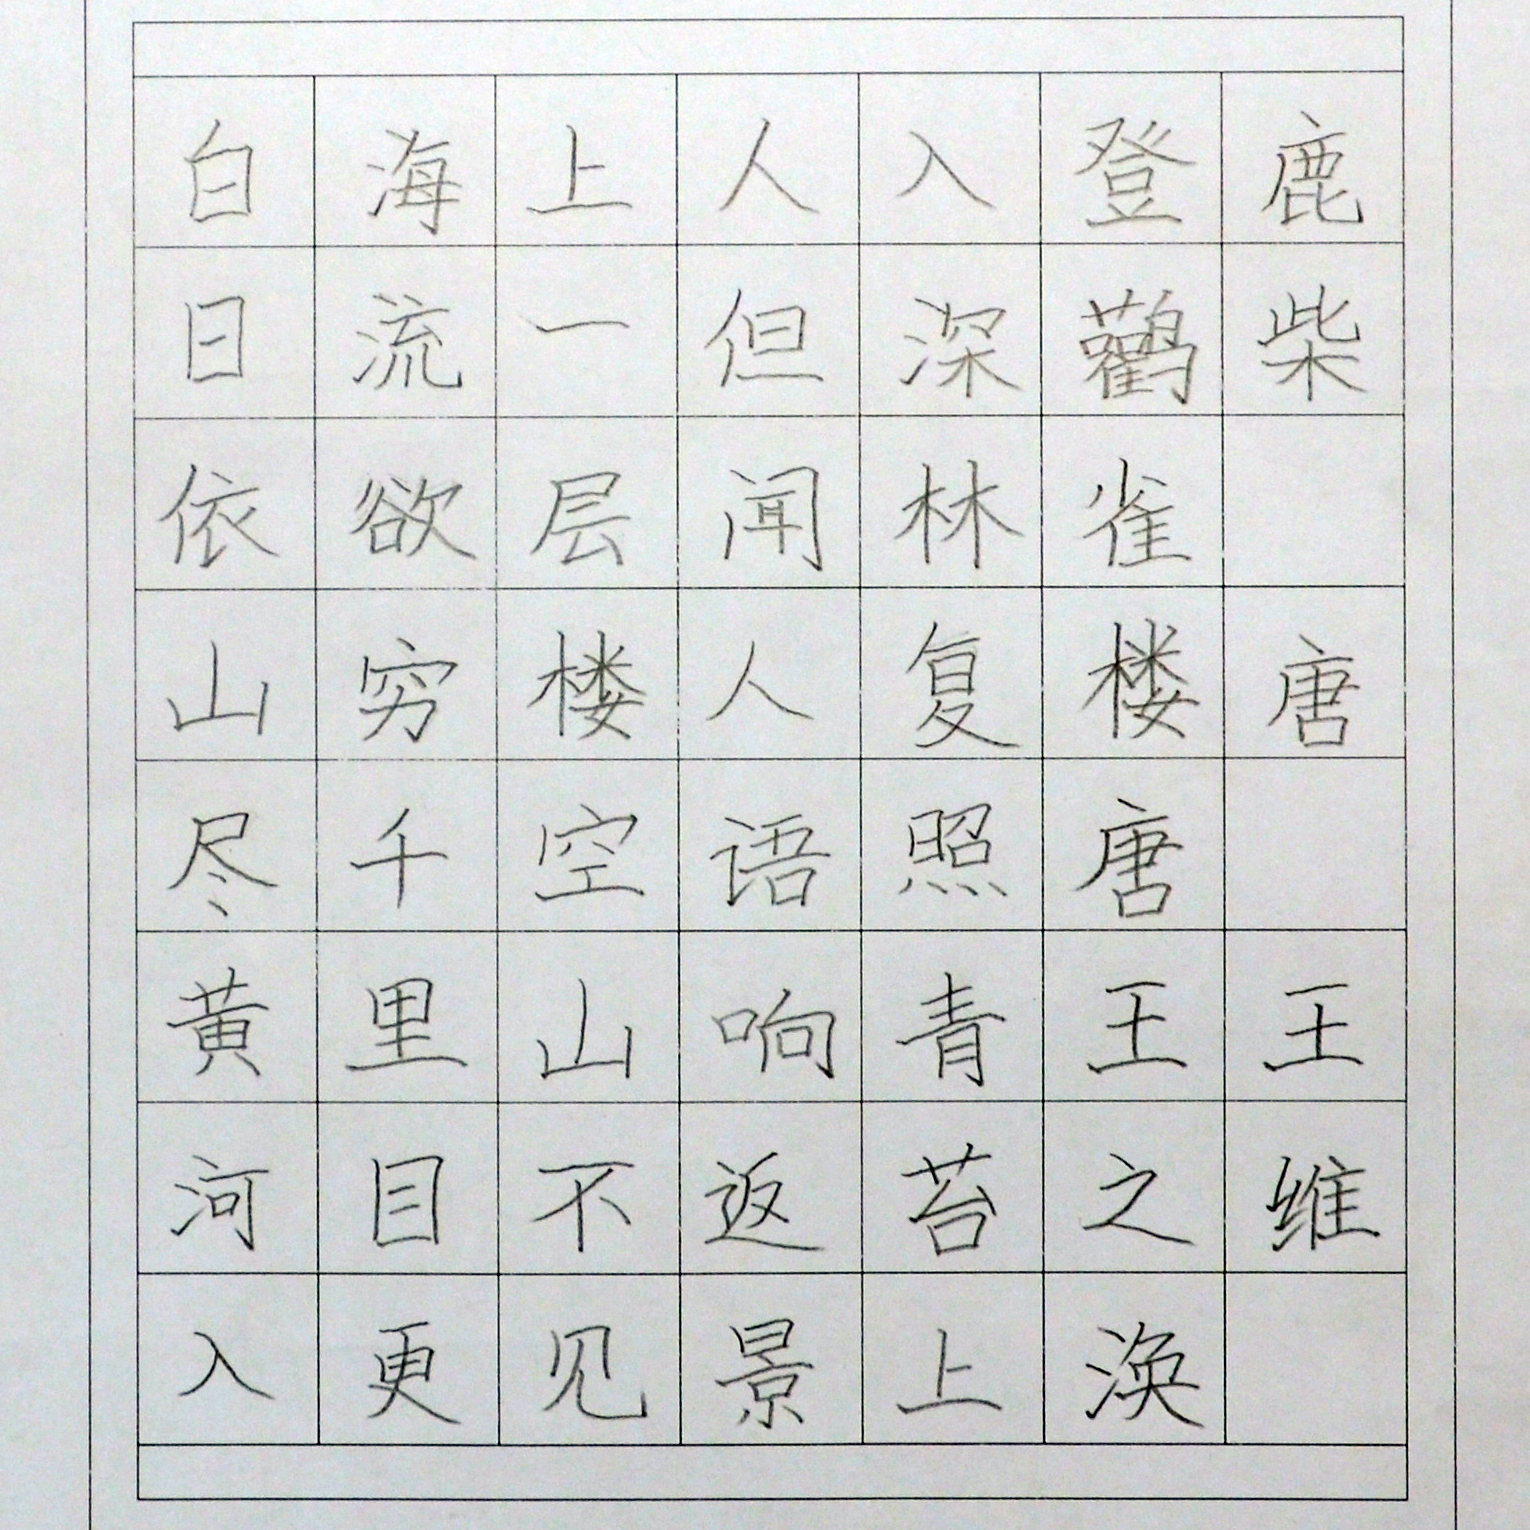 白日依山尽黄河入
海流欲穷千里目更
上一层楼空山不见
人但闻人语响返景
入深林复照青苔上
登鹳雀楼唐王之涣
鹿柴 唐 王维